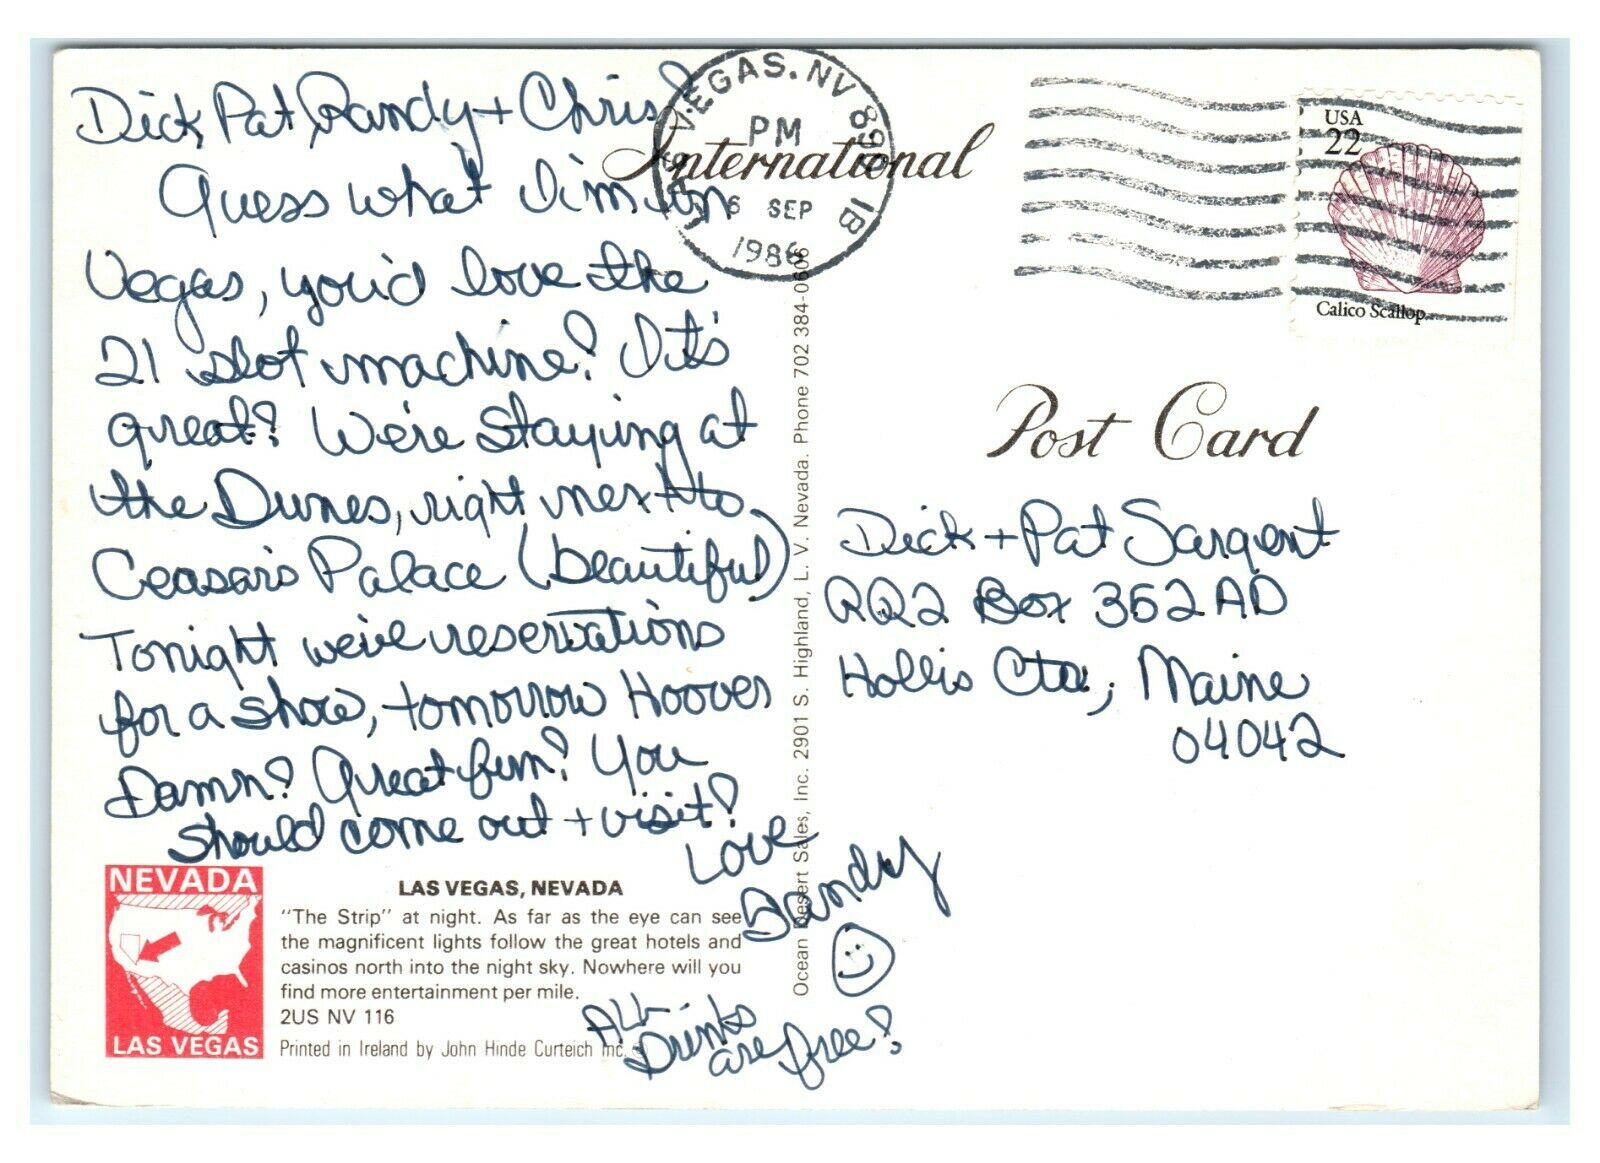 Dick, Pat, Randy + Chris!
Guess what I'm in
Vegas, you'd love the
21 slot machine! It's
great! We're staying at
the Dunes, right next to
Ceasar's Palace (beautiful)
Tonight we've reservations
for a show, tomorrow Hoover
Damn! Great fun! You
should come out + visit!
Love
Sandy
All
Drinks
are free!
NEVADA
LAS VEGAS
LAS VEGAS, NEVADA
"The Strip" at night. As far as the eye can see
the magnificent lights follow the great hotels and
casinos north into the night sky. Nowhere will you
find more entertainment per mile.
2US NV 116
Printed in Ireland by John Hinde Curteich Inc.
Ocean Desert Sales, Inc. 2901 S. Highland, L. V. Nevada. Phone 702 384-0606
International
LAS VEGAS, NV
PM
6 SEP
1986
1B
USA
22
Calico Scallop
Post Card
Dick + Pat Sargent
RR2 Box 352AD
Hollis Ctr, Maine
04042